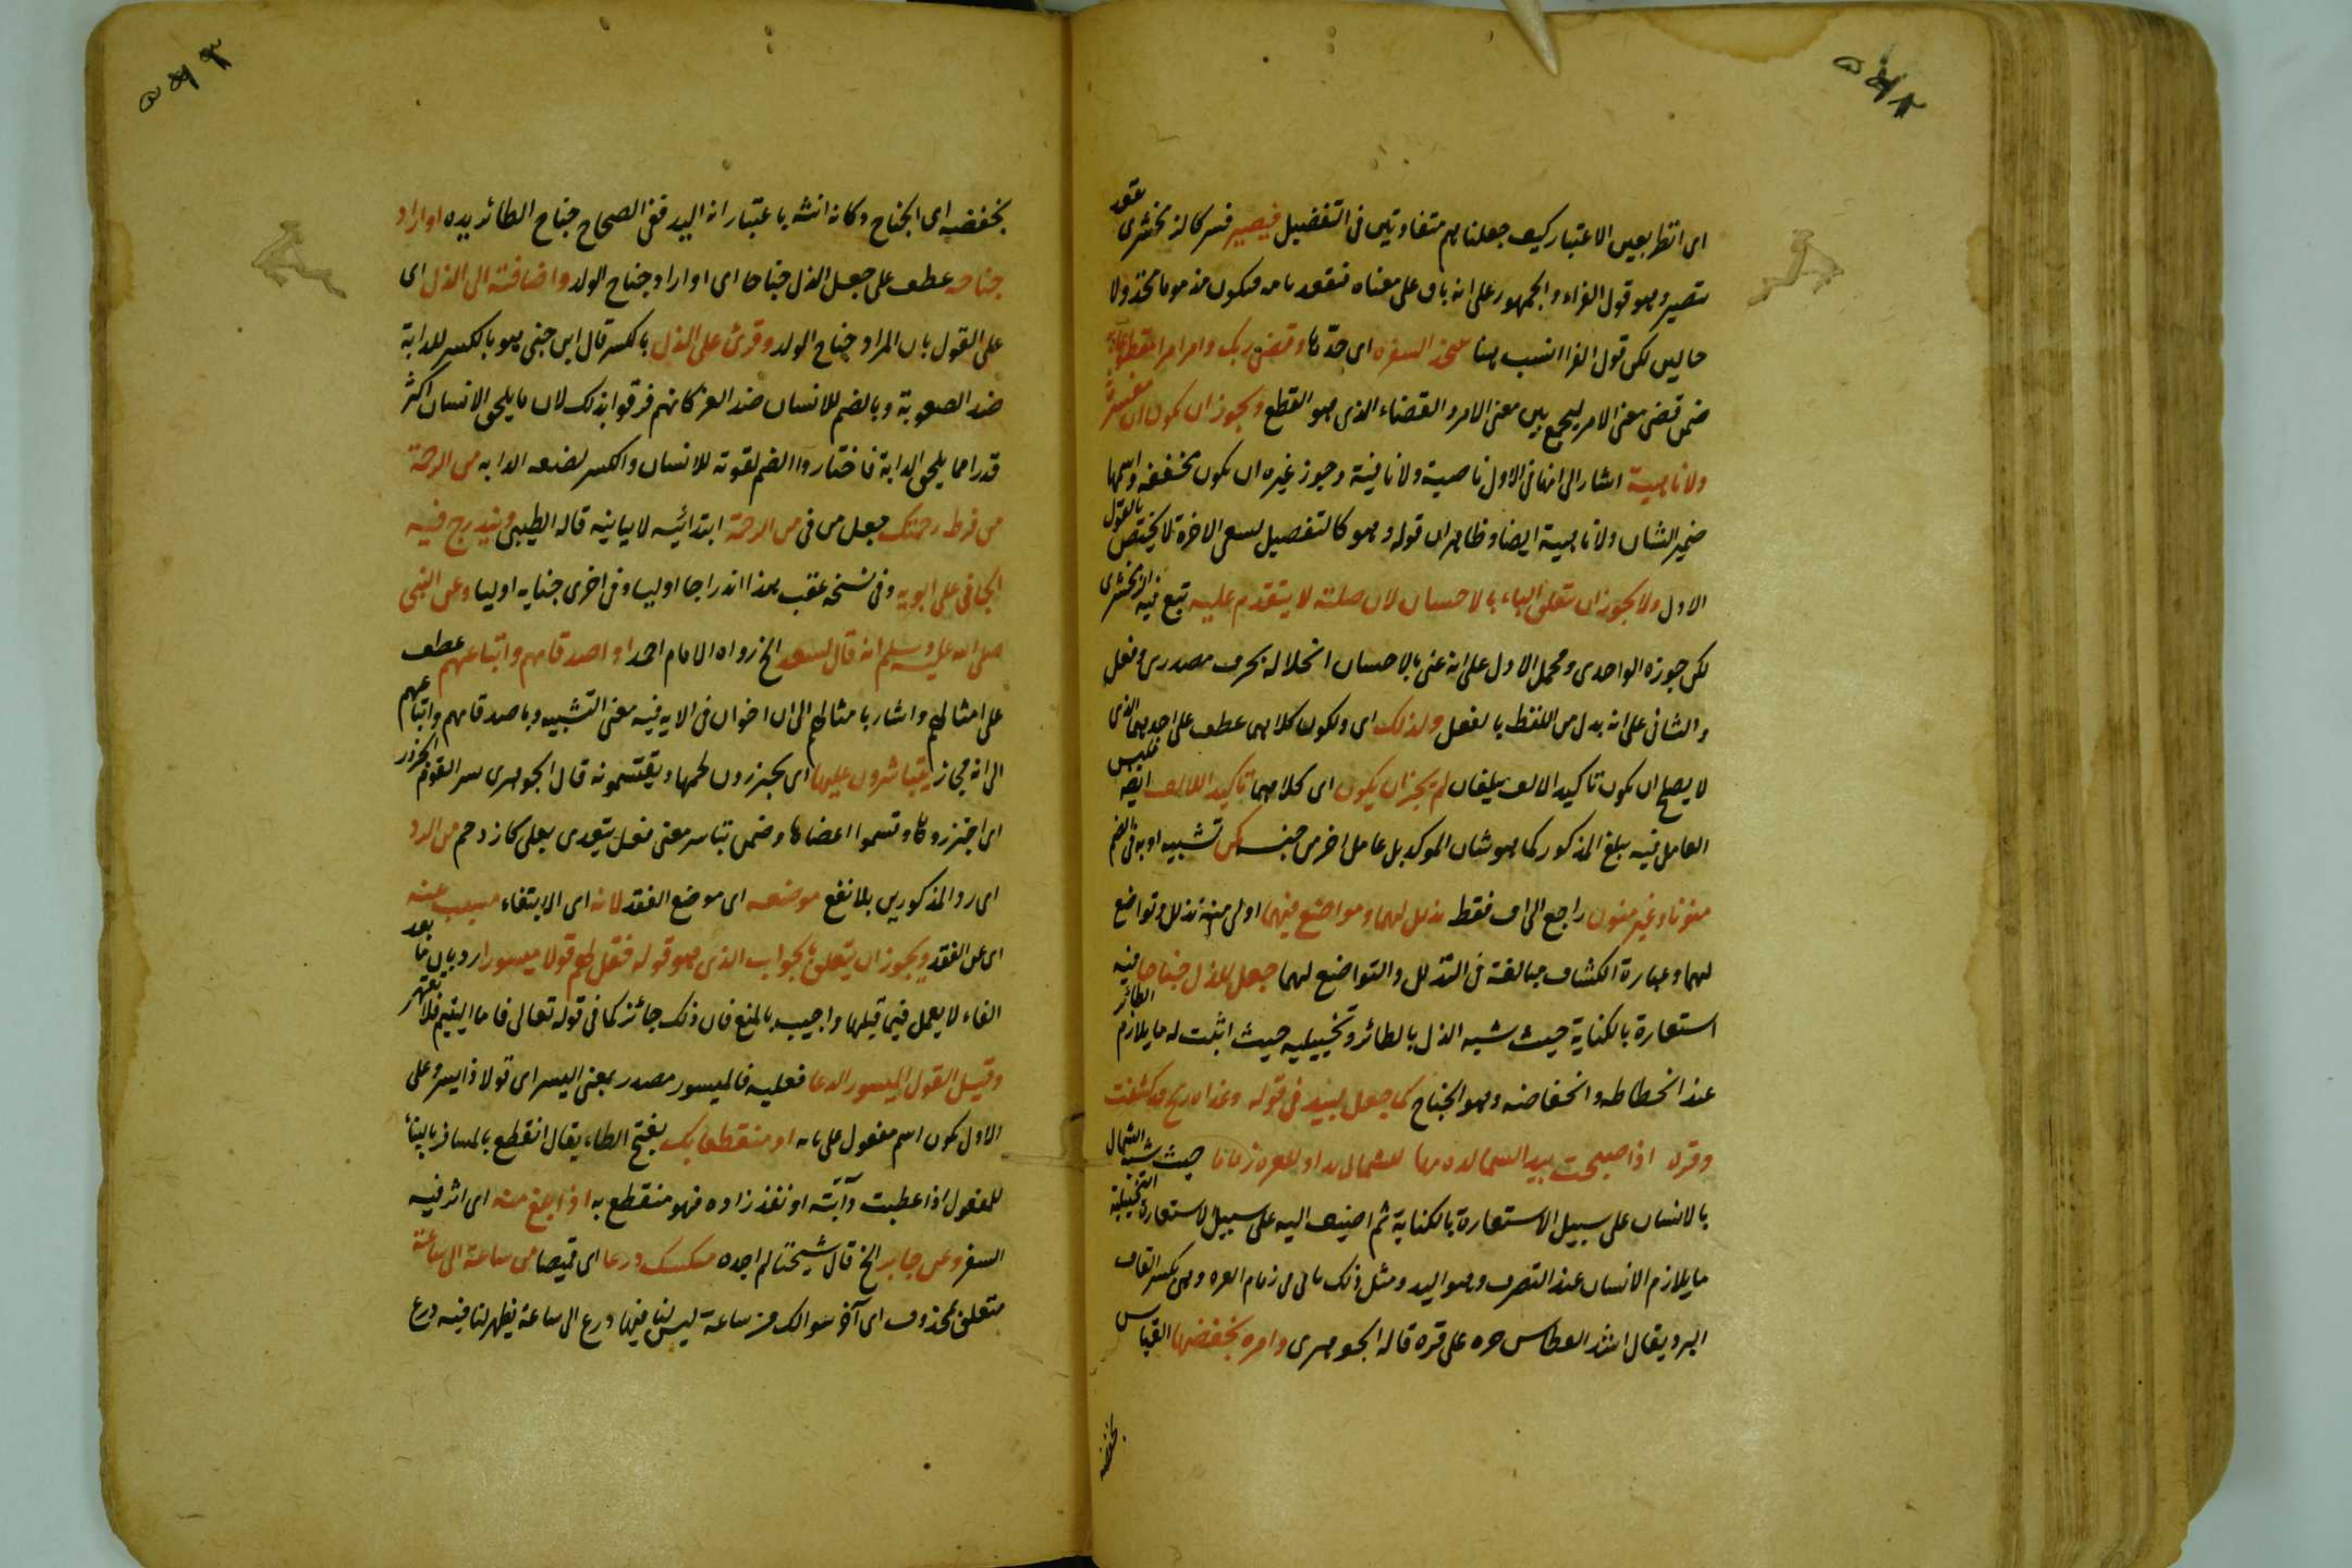 اى انظر بعين الاعتبار كيف جعلناهم متفاوتين فى التفضيل فيصير فسر كالزمخشرى تقعد
بتصير وهو قول الفراء والجمهور على انه باق على معناه فتقعد فيكون مذموما مخذولا
حالين لكن قول الفرا انسب هنا اى حدتها وقضى ربك وامر امرا مقطوعا به
ضمن قضى معنى الامر ليجمع بين معنى الامر والقضاء الذى هو القطع ويجوز ان يكون ان مفسرة
ولا ناهية اشار الى انها فى الاول ناصبة ولا نافية وجوز غيره ان يكون مخففة واسمها
ضمير الشان ولا ناهية ايضا وظاهر ان قوله وهو كالتفصيل لسعى الاخرة لا يختص بالقول
الاول ولا يجوز ان يتعلق الباء بالاحسان لان صلته لا يتقدم عليه تبع فيه الزمخشرى
لكن جوزه الواحدى ومحمل الاول على انه عنى بالاحسان انحلاله بحرف مصدرى وفعل
والثانى على انه بدل من اللفظ بالفعل ولذلك اى ولكون كلاهما عطف على احدهما الذى
لا يصلح ان يكون تاكيد الالف يبلغان لم يجز ان يكون اى كلاهما تاكيد اللالف ايضا فليس
العامل فيه يبلغ المذكور كما هو شان الموكد بل عامل اخر من جنسه تشبيه او به فى الضم
منونا وغير منون راجع الى اف فقط تذلل لهما وتواضع فيهما اولى منه تذلل وتواضع
لهما وعبارة الكشاف مبالغة فى التذلل والتواضع لهما جعل للذل جناحا فيه
استعارة بالكناية حيث شبه الذل بالطائر وتخييلية حيث اثبت له ما يلازم الطائر
عند انحطاطه وانخفاضه وهو الجناح كما جعل لبيد فى قوله وغداة ريح قد كشفت
وقرة اذ اصبحت بيد الشمال زمامها للشمال يدا وللقرة زماما حيث شبه الشمال
بالانسان على سبيل الاستعارة بالكناية ثم اضيف اليه على سبيل الاستعارة التخييلية
ما يلازم الانسان عند التصرف وهو اليد ومثل ذلك ياتى فى زمام القرة وهى بكسر القاف
البرد يقال اشد العطش حرة على قرة قاله الجوهرى وامره بخفضهما القياس
بخفضه
بخفضه اى الجناح وكانه انثه باعتبار انه اليد ففى الصحاح جناح الطائر يده او اراد
جناحه عطف على جعل الذل جناحا اى او اراد جناح الولد واضافته الى الذل اى
على القول بان المراد جناح الولد وقرئ على الذل بالكسر قال ابن جنى هو بالكسر للدابة
ضد الصعوبة وبالضم للانسان ضد العز كانهم فرقوا بذلك لان ما يلحق الانسان اكثر
قدرا مما يلحق الدابة فاختاروا الضم لقوته للانسان والكسر لضعفه الدابه من الرحمة
من فرط رحمتك جعل من فى من الرحمة ابتدائيه لا بيانيه قاله الطيبى ويندرج فيه
الجافى على ابويه وفى نسخه عقب هذا اندراجا اوليا وفى اخرى جنايه اوليا وعن النبى
صلى الله عليه وسلم انه قال لسعد الخ رواه الامام احمد او اصدقاهم واتباعهم عطف
على امثالهم واشار بامثالهم الى ان اخوان فى الايه فيه معنى التشبيه وباصدقاهم واتباعهم
الى انه مجاز يتياسرون عليها اى يجتزرون لحمها ويقتسمونه قال الجوهرى يسر القوم الجزور
اى اجتزروها وقسموا اعضاها وضمن تياسر معنى فعل يتعدى بعلى كازدحم من الرد
اى رد المذكورين بلا نفع موضعه اى موضع الفقد لانه اى الابتغاء مسبب عنه
اى عن الفقد ويجوز ان يتعلق بالجواب الذى هو قوله فقل لهم قولا ميسورا رد بان ما بعد
الفاء لا يعمل فيما قبلها واجيب بالمنع فان ذلك جائز كما فى قوله تعالى فاما اليتيم فلا تقهر
وقيل القول الميسور الدعا فعليه فالميسور مصدر بمعنى اليسر اى قولا ذا يسر وعلى
الاول يكون اسم مفعول على بابه او منقطعا بك بفتح الطاء يقال انقطع بالمسافر بالبناء
للمفعول اذا عطبت دآبته او نفذ زاده فهو منقطع به اذا بلغ منه اى اثر فيه
السفر وعن جابر الخ قال شيخنا لم اجده درعا اى قميصا من ساعة الى ساعة
متعلق بمحذوف اى آخر سوالك من ساعة ليس لنا فيها درع الى ساعة يظهر لنا فيه درع